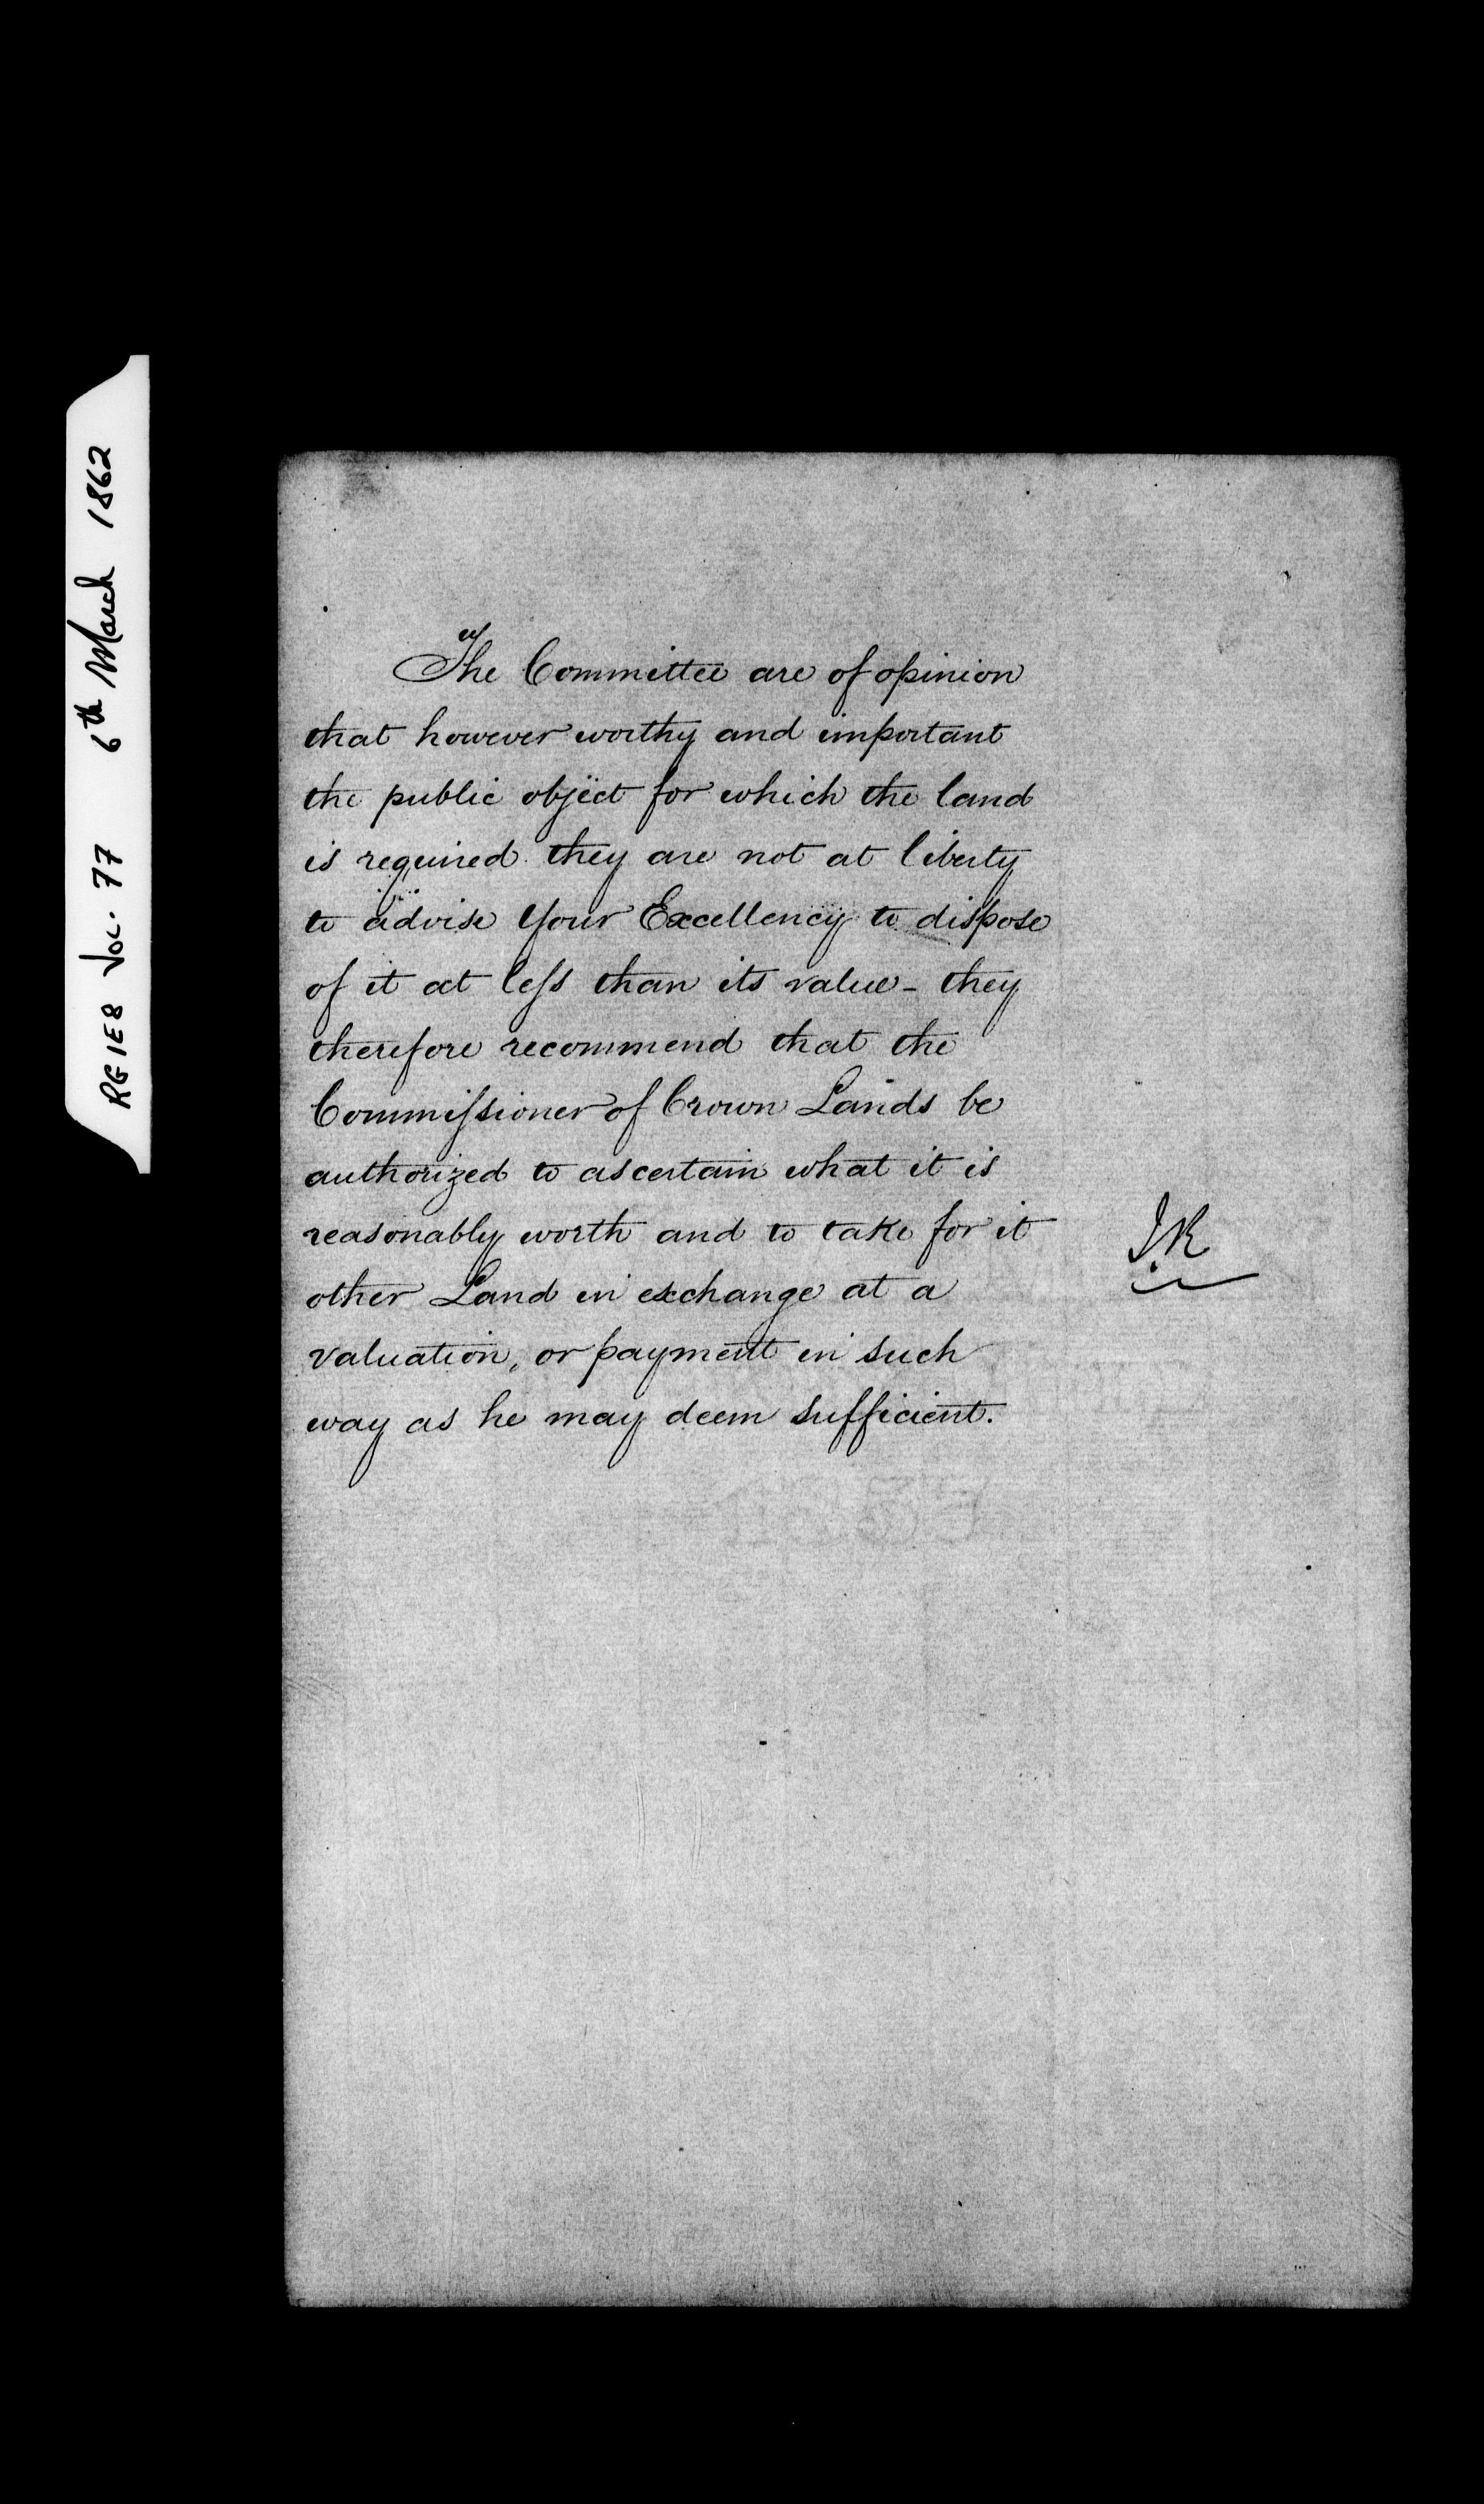 RG1E8 VOL. 77 6th March 1862
The Committee are of opinion
that however worthy and important
the public object for which the land
is required they are not at liberty
to advise Your Excellency to dispose
of it at less than its value - they
therefore recommend that the
Commissioner of Crown Lands be
authorized to ascertain what it is
reasonably worth and to take for it
other Land in exchange at a
valuation, or payment in such
way as he may deem sufficient.